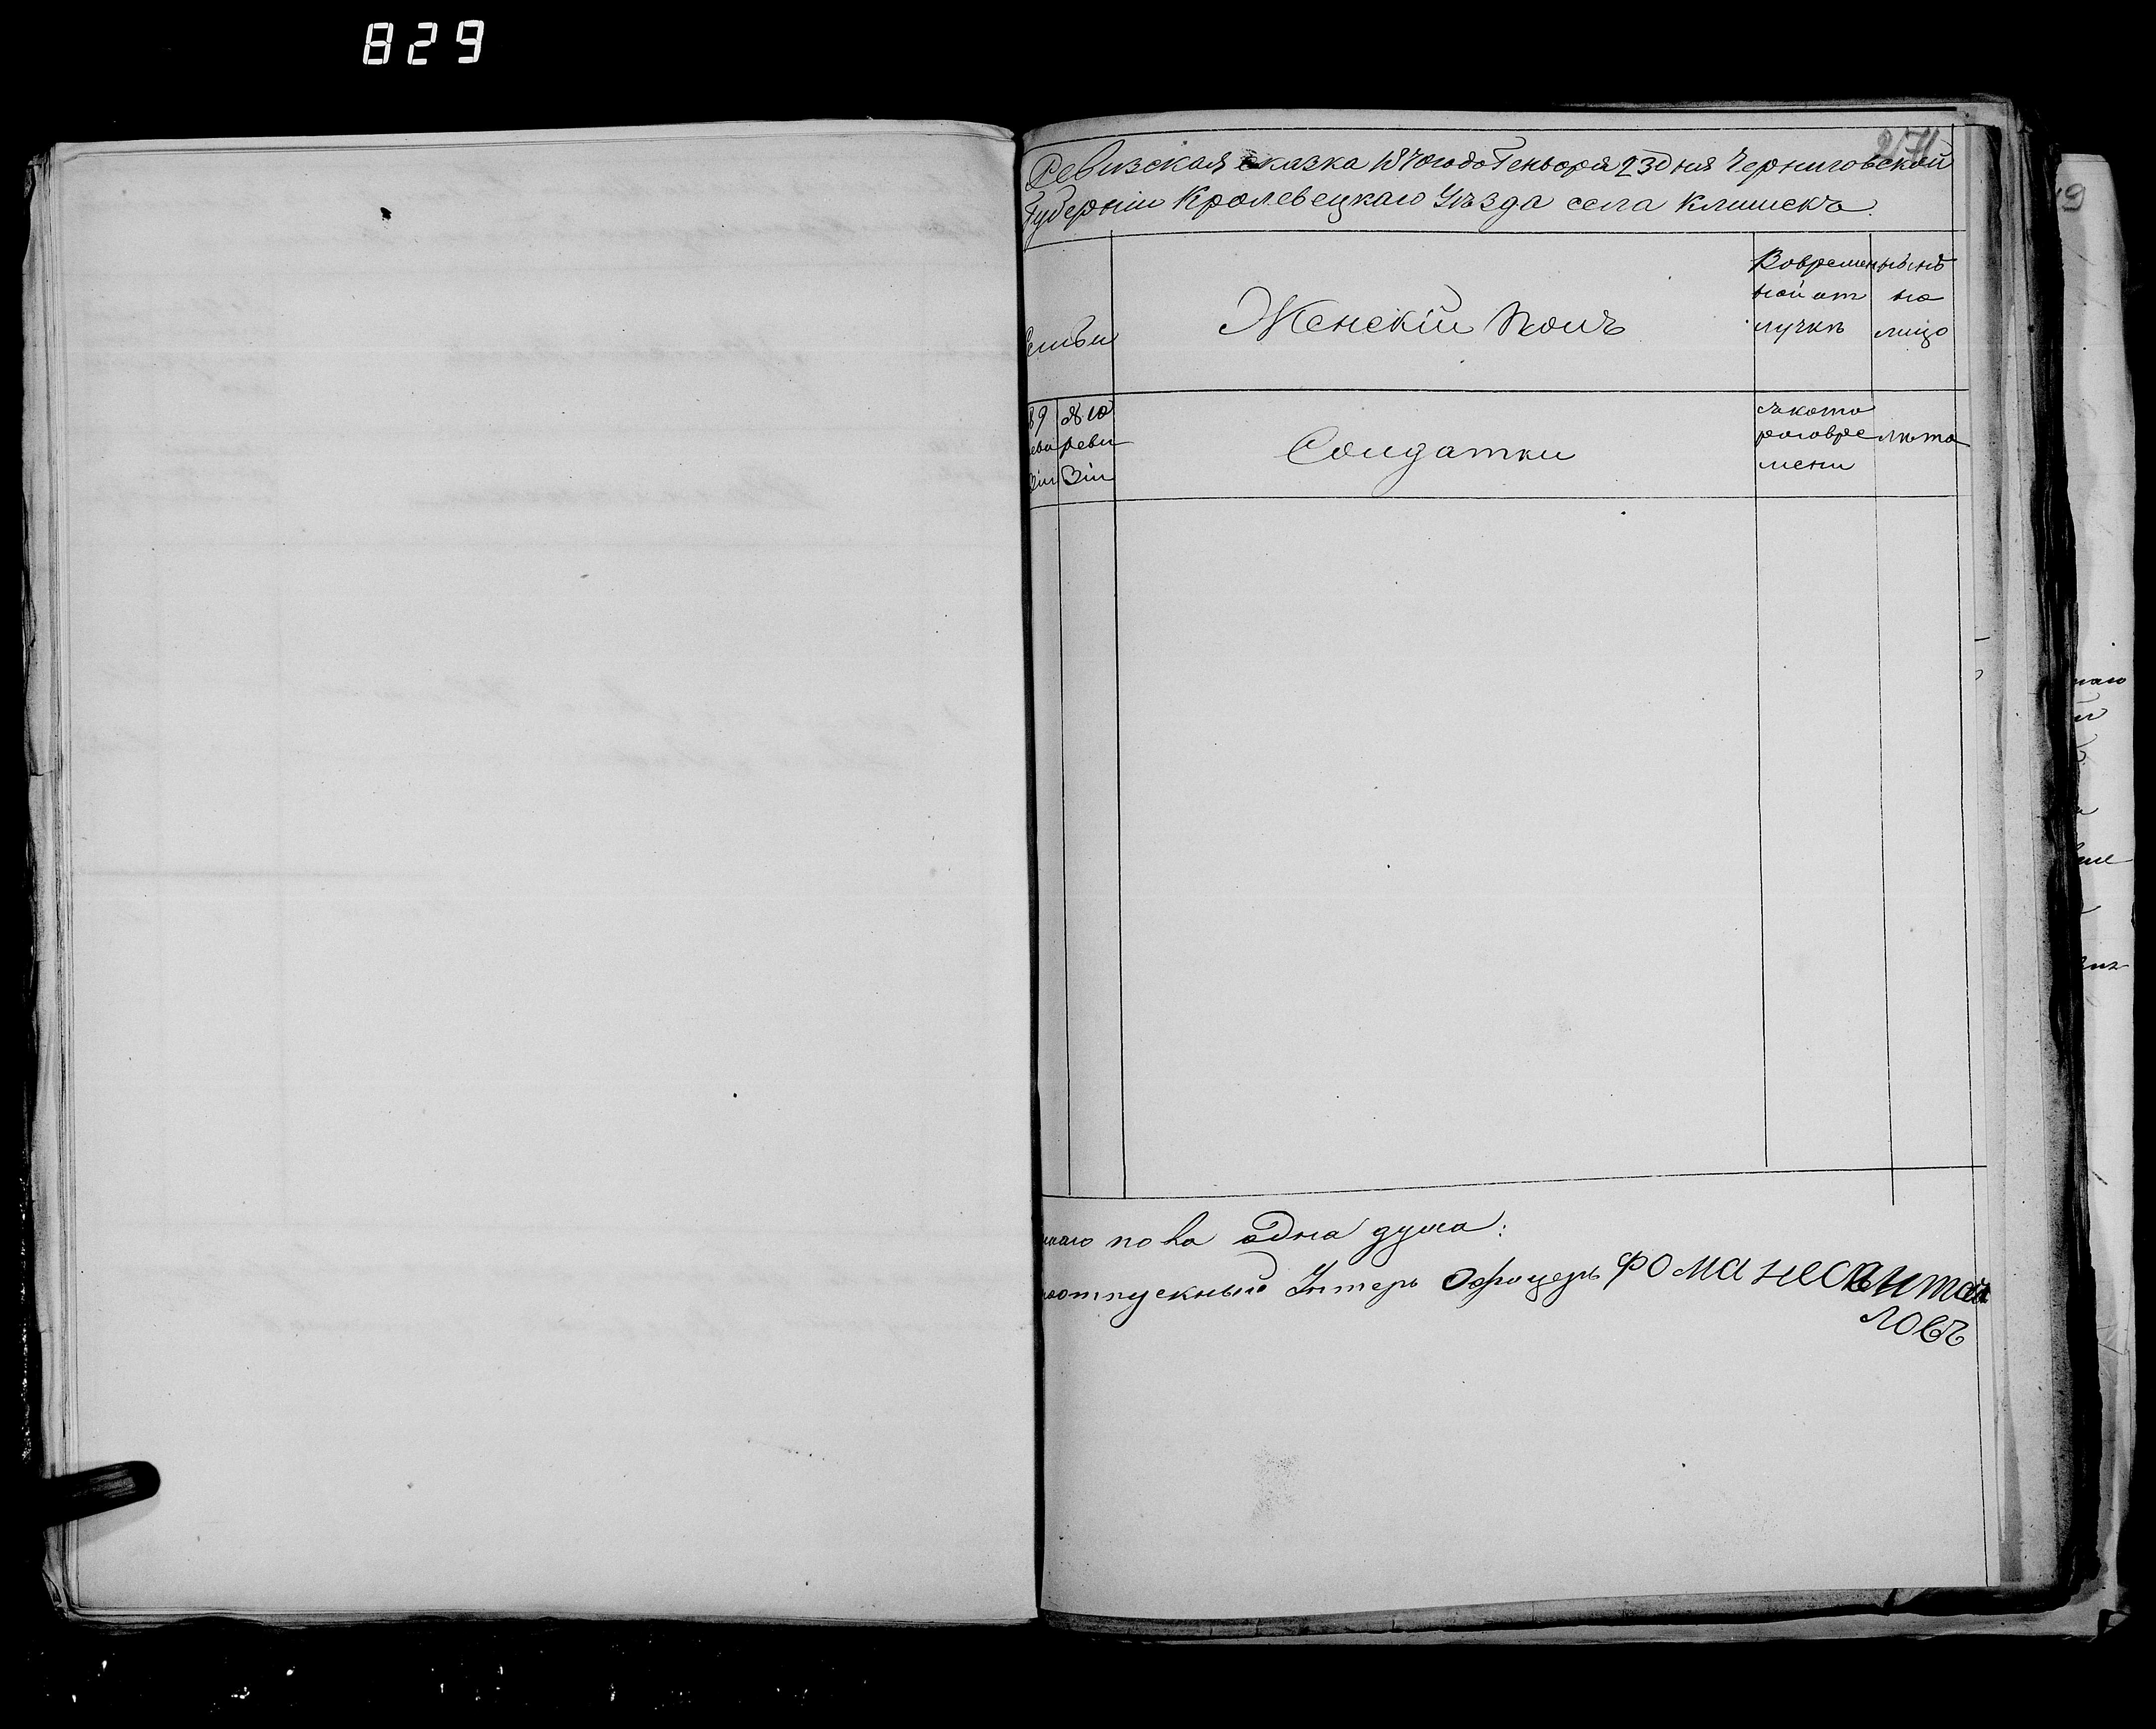 829
271
Ревизская сказка 1870 годо Геньоря 23 дня Черниговской
Губерніи Кролевецкаго Уѣзда села Клишекъ
Семьи
Женскій Полъ
Вовремен
ной от
лучкѣ
нынѣ
но
лицо
№ 9
реви
зіи
№ 10
реви
Зіи
Солдатки
съкото
роговре
мени
лѣта
наго пола одна душа:
отпускный Унтеръ Офицеръ Фома
ловъ